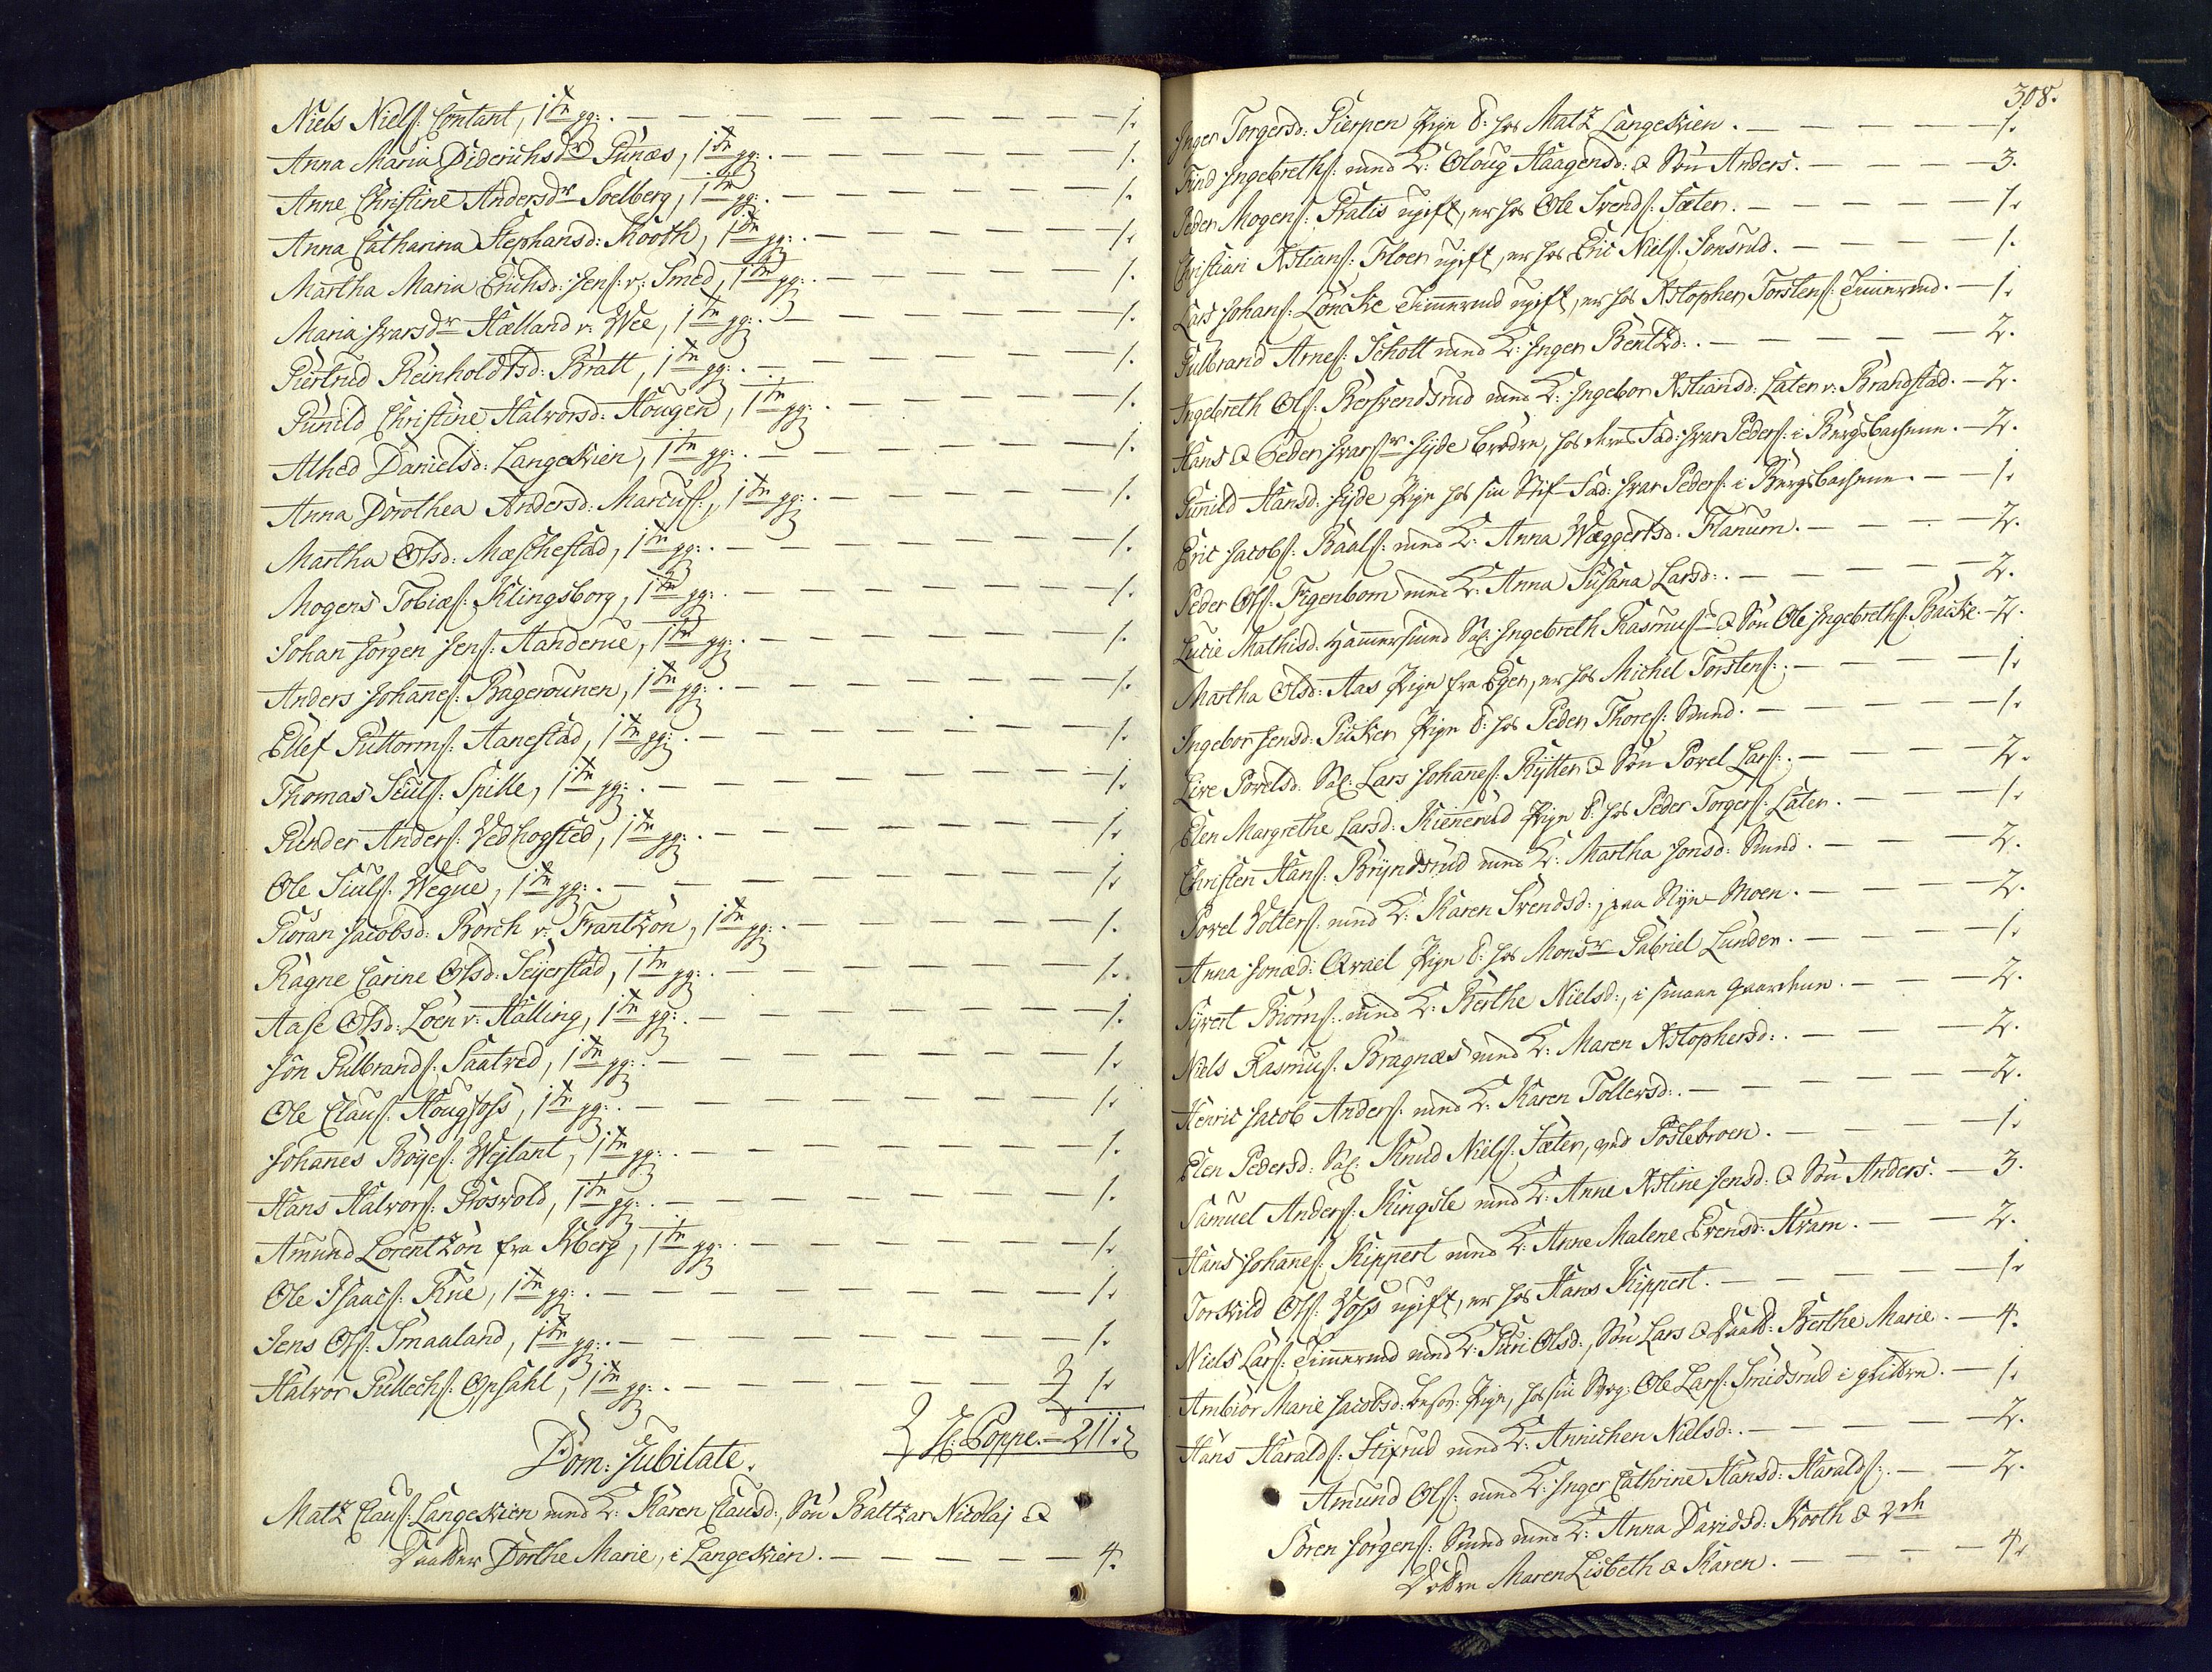 Niels Niels: Contant, 1te gg: . — 1.
Anna Maria Diderichsdr Punæs, 1te gg: . — 1.
Anne Christine Andersdr Soelberg, 1te gg: . — 1.
Anna Catharina Stephansd: Kooth, 1te gg: . — 1.
Martha Maria Erichsd: Jens: v: Smed, 1te gg: . — 1.
Maria Ivarsdr Hælland v: Wee, 1te gg: . — 1.
Giertrud Reinholdtsd: Bratt, 1te gg: . — 1.
Gunild Christine Halvorsd: Hougen, 1te gg: . — 1.
Alhed Danielsd: Langeskien, 1te gg: . — 1.
Anna Dorothea Andersd: Marcus:, 1te gg: . — 1.
Martha Olsd: Mæschestad, 1te gg: . — 1.
Mogens Tobias: Klingsborg, 1te gg: . — 1.
Johan Jørgen Jens: Handerue, 1te gg: . — 1.
Anders Johanes: Bagerounen, 1te gg: . — 1.
Ellef Guttorms: Aanestad, 1te gg: . — 1.
Thomas Siuls: Spille, 1te gg: . — 1.
Gunder Anders: Vedhogsted, 1te gg: . — 1.
Ole Siuls: Wegne, 1te gg: . — 1.
Giøran Jacobsd: Borch v: Frantzøn, 1te gg: . — 1.
Ragne Carine Olsd: Seyerstad, 1te gg: . — 1.
Aase Olsd: Løen v: Halling, 1te gg: . — 1.
Jøn Gulbrands: Saatved, 1te gg: . — 1.
Ole Claus: Hougfoss, 1te gg: . — 1.
Johanes Bøyes: Wejlant, 1te gg: . — 1.
Hans Halvors: Goswold, 1te gg: . — 1.
Amund Lorentzøn fra Kberg, 1te gg: . — 1.
Ole Isaacs: Rue, 1te gg: . — 1.
Jens Ols: Smaaland, 1te gg: . — 1.
Halvor Gullechs: Opsahl, 1te gg: . — 1.
H: Poppe. — 211.
Dom: Jubilate.
Matz Claus: Langeskien med K: Karen Clausd:, Søn Baltzar Nicolaj &
Daatter Dorthe Marie, i Langeskien. — 4.
308.
Inger Torgersd: Pierpen Pige t: hos Matz Langeskien. — 1.
Find Ingebreths: med K: Oloug Haagensd: & Søn Anders. — 3.
Peder Mogens: Ratis ugift, er hos Ole Svends: Sæter. — 1.
Christian Kstians: Floer ugift, er hos Eric Niels: Jonsrud. — 1.
Lars Johans: Løncke Timmerud ugift, er hos Kstopher Torstens: Timmerud. — 1.
Gulbrand Arnes: Schott med K: Inger Bentzd: . — 2.
Ingebreth Ols: Bersvendsrud med K: Ingebor Kstiansd: Later v: Brandstad. — 2.
Hans & Peder Ivarsr Hyde Brødre, hos deres Fad: Ivar Peders: i Bergsbachene. — 2.
Gunild Hansd: Hyde Pige hos sin Stif-Fad: Ivar Peders: i Bergsbachene. — 1.
Eric Jacobs: Baals: med K: Anna Wæggertsd: Flanum. — 2.
Peder Ols: Egenbom med K: Anna Susana Larsd: . — 2.
Lucie Mathisd: Hammersmed Sal: Ingebreth Rasmus: & Søn Ole Ingebreths: Backe. — 2.
Martha Olsd: Aas Pige fra Eger, er hos Michel Torstens: . — 1.
Ingebor Jensd: Gucker Pige t: hos Peder Thores: Smed. — 1.
Live Povelsd: Sal: Lars Johanes: Rytter & Søn Povel Lars: . — 2.
Elen Margrethe Larsd: Kiennerud Pige t: hos Peder Torgers: Later. — 1.
Christen Hans: Bryndsrud med K: Martha Jonsd: Smed. — 2.
Povel Wolters: med K: Karen Svendsd:, paa Nye-Moen. — 2.
Anna Jonæd: Qvael Pige t: hos Monsr Gabriel Lunder. — 1.
Syvert Biørns: med K: Berthe Nielsd:, i smaae Gaardene. — 2.
Niels Rasmus: Bragnæs med K: Maren Kstophersd: . — 2.
Henric Jacob Anders: med K: Karen Tollersd: . — 2.
Elen Pedersd: Sal: Knud Niels: Sæter, ved Gøslebroen. — 1.
Samuel Anders: Kingsle med K: Anne Kstine Jensd: & Søn Anders. — 3.
Hans Johanes: Kippert med K: Anne Malene Evensd: Hvam. — 2.
Torkild Ols: Voss ugift, er hos Hans Kippert. — 1.
Niels Lars: Timmerud med K: Guri Olsd:, Søn Lars & Daatt: Berthe Marie. — 4.
Ambior Marie Jacobsd: besov: Pige, hos sin Svog: Ole Lars: Smidsrud i Glittre. — 1.
Hans Haralds: Stifrud med K: Annichen Nielsd: . — 2.
Amund Ols: med K: Inger Cathrine Hansd: Haralds: . — 2.
Søren Jørgens: Smed med K: Anna Davidsd: Kooth & 2de
Døttre Maren Lisbeth & Karen. — 4.